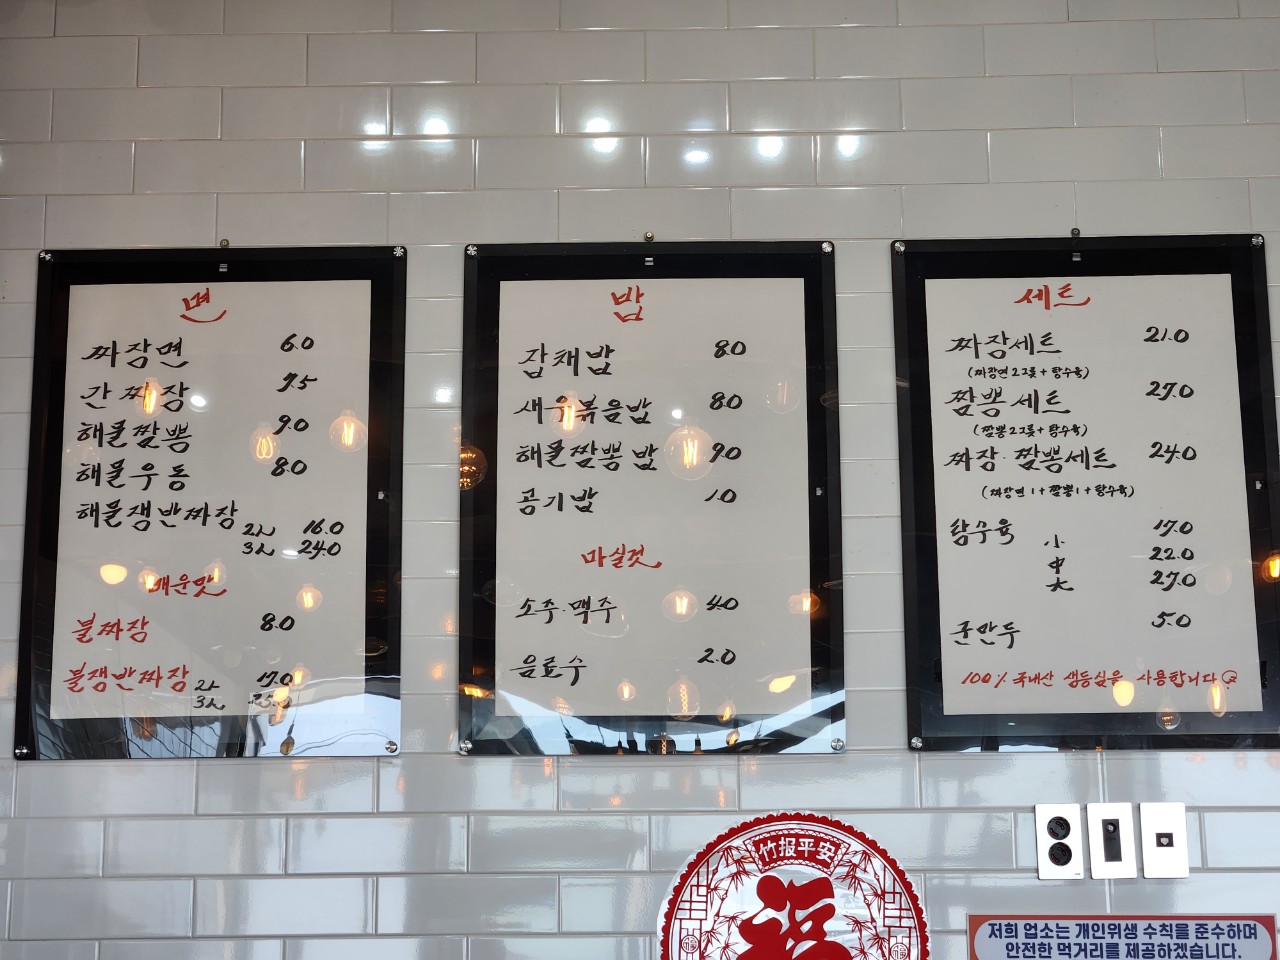 면
짜장면 6.0
간짜장 7.5
해물짬뽕 9.0
해물우동 8.0
해물쟁반짜장 2人 16.0
3人 24.0
매운맛
불짜장 8.0
불쟁반짜장 2人 17.0
3人 25.0
밥
잡채밥 8.0
새우볶음밥 8.0
해물짬뽕밥 9.0
공기밥 1.0
마실것
소주·맥주 4.0
음료수 2.0
세트
짜장세트 21.0
(짜장면2그릇+탕수육)
짬뽕세트 27.0
(짬뽕2그릇+탕수육)
짜장·짬뽕세트 24.0
(짜장면1+짬뽕1+탕수육)
탕수육 小 17.0
中 22.0
大 27.0
군만두 5.0
100% 국내산 생등심을 사용합니다
竹报平安
福
저희 업소는 개인위생 수칙을 준수하며
안전한 먹거리를 제공하겠습니다.